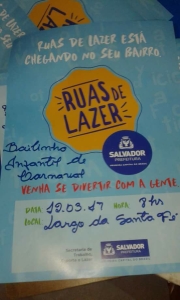 RUAS DE LAZER ESTÁ
CHEGANDO NO SEU BAIRRO.
RUAS DE
LAZER
SALVADOR
PREFEITURA
Bailinho
Infantil de
Carnaval
VENHA SE DIVERTIR COM A GENTE.
DATA 12.03.17 HORA 8 hrs
LOCAL Largo da Santa Fé
Secretaria de
Trabalho,
Esporte e Lazer
SALVADOR
PREFEITURA